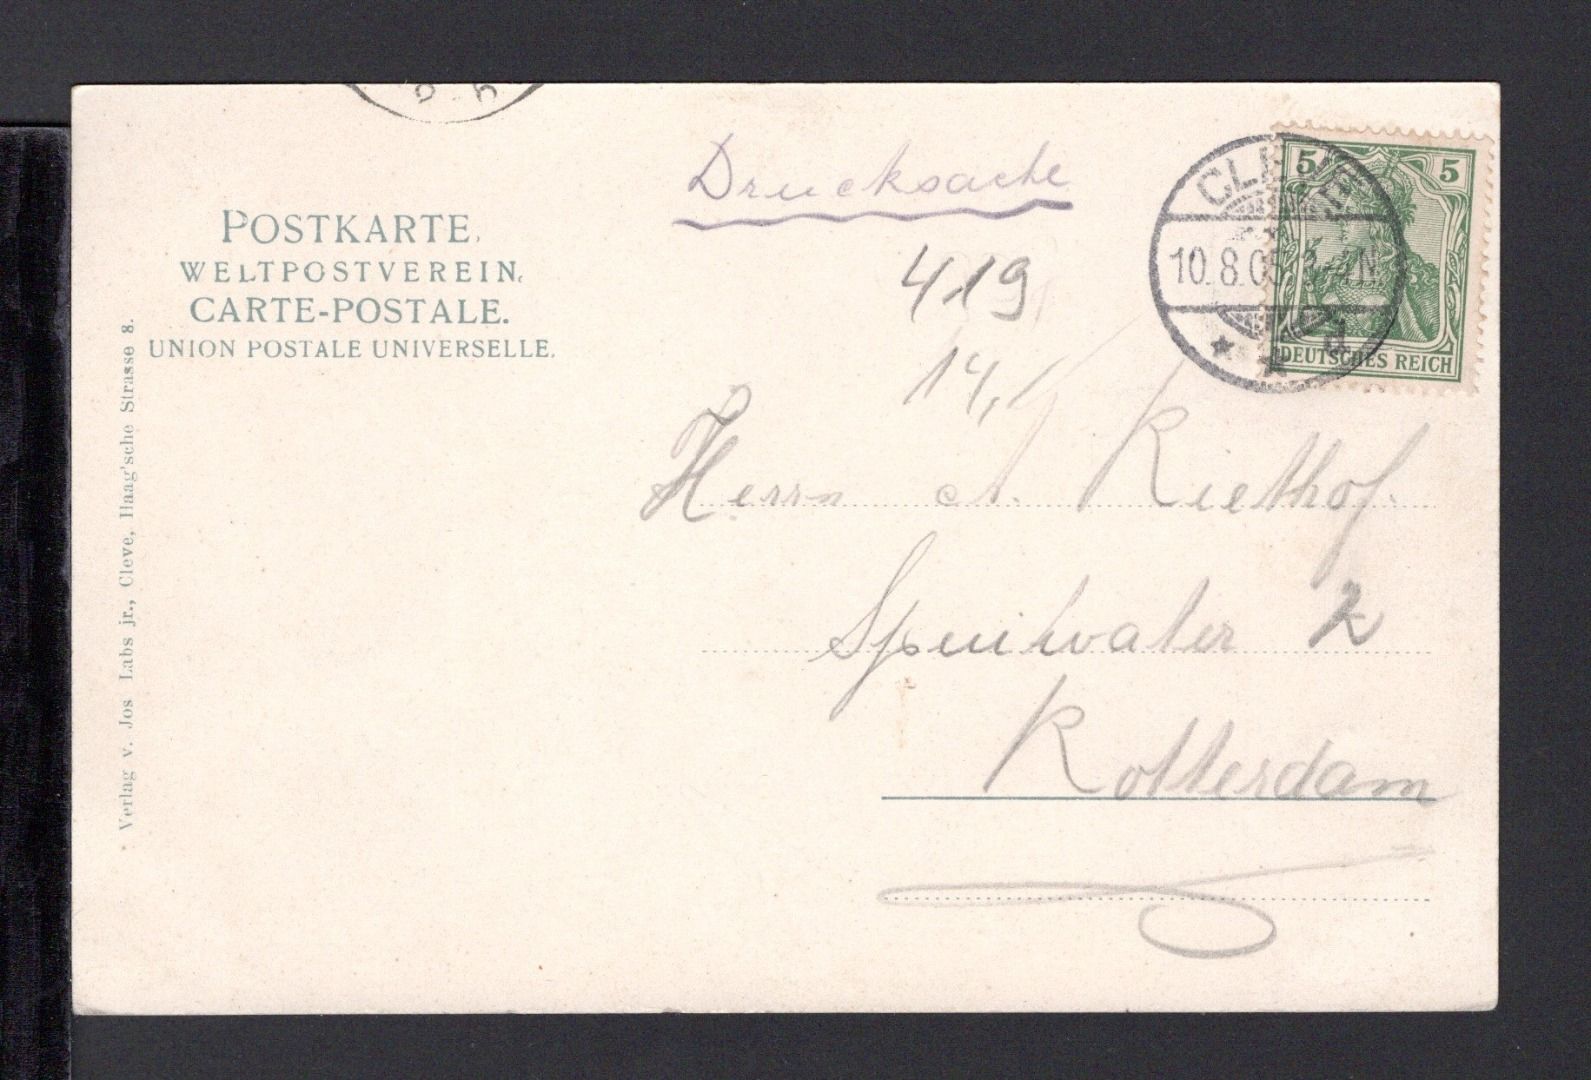 POSTKARTE.
WELTPOSTVEREIN.
CARTE-POSTALE.
UNION POSTALE UNIVERSELLE.
Verlag v. Jos Labs jr., Cleve, Haag'sche Strasse 8.
Drucksache
419
14,
CLEVE
10.8.05. 3-4 N
d
5 5
DEUTSCHES REICH
Herrn A. Kiethof.
Spuiwater 2
Rotterdam